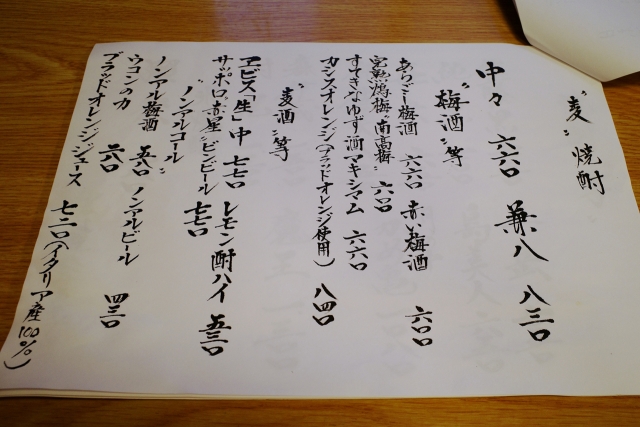 "麦"焼酎
中々 六六〇 兼八 八三〇
"梅酒"等
あらごし梅酒 六六〇 赤い梅酒 六〇〇
完熟濁梅"南高梅" 六〇〇
すてきなゆず酒マキシマム 六六〇
カシスオレンジ(ブラッドオレンジ使用) 八四〇
"麦酒"等
ヱビス「生」中 七七〇 レモン酎ハイ 五三〇
サッポロ"赤星"ビンビール 七七〇
"ノンアルコール"
ノンアル梅酒 五〇〇 ノンアルビール 四三〇
ウコンの力 六〇
ブラッドオレンジジュース 七二〇(イタリア産100%)